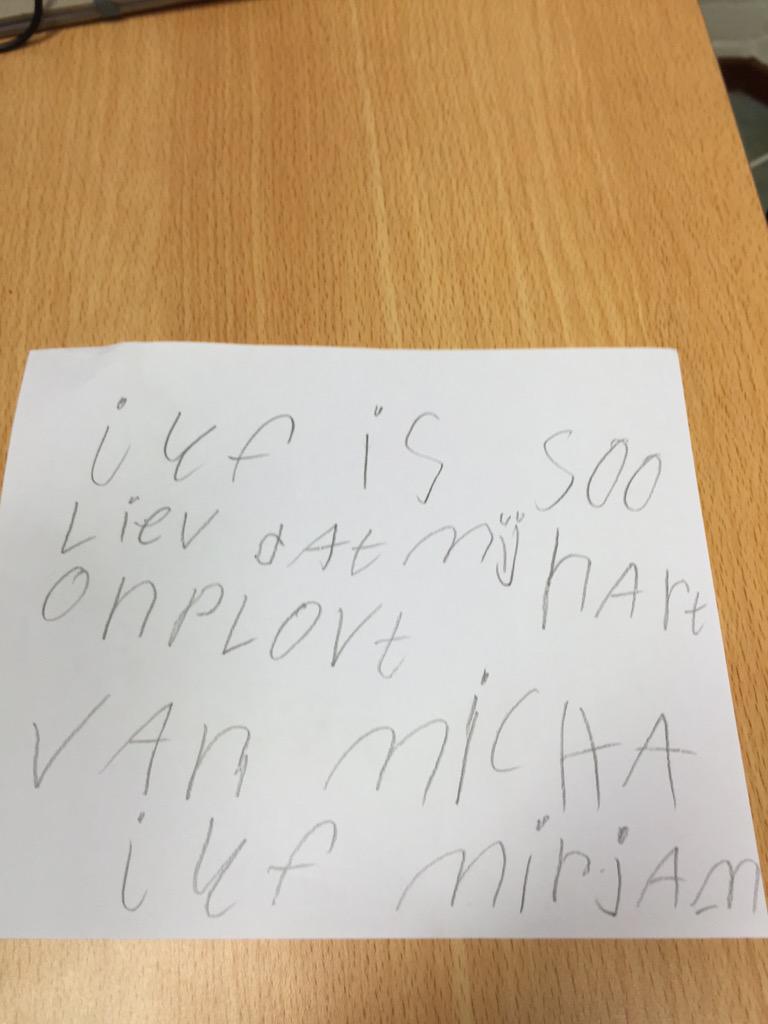 iyf is soo
Liev dAt mij hArt
onPLOVt
VAn miCHA
iyf mirjAm